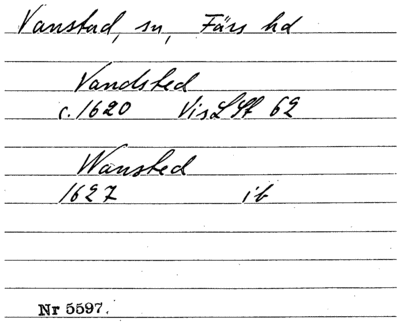 Vanstad, sn, Färs hd
Vandsted
c. 1620 VisLSt 62
Wansted
1627 ib
Nr 5597.